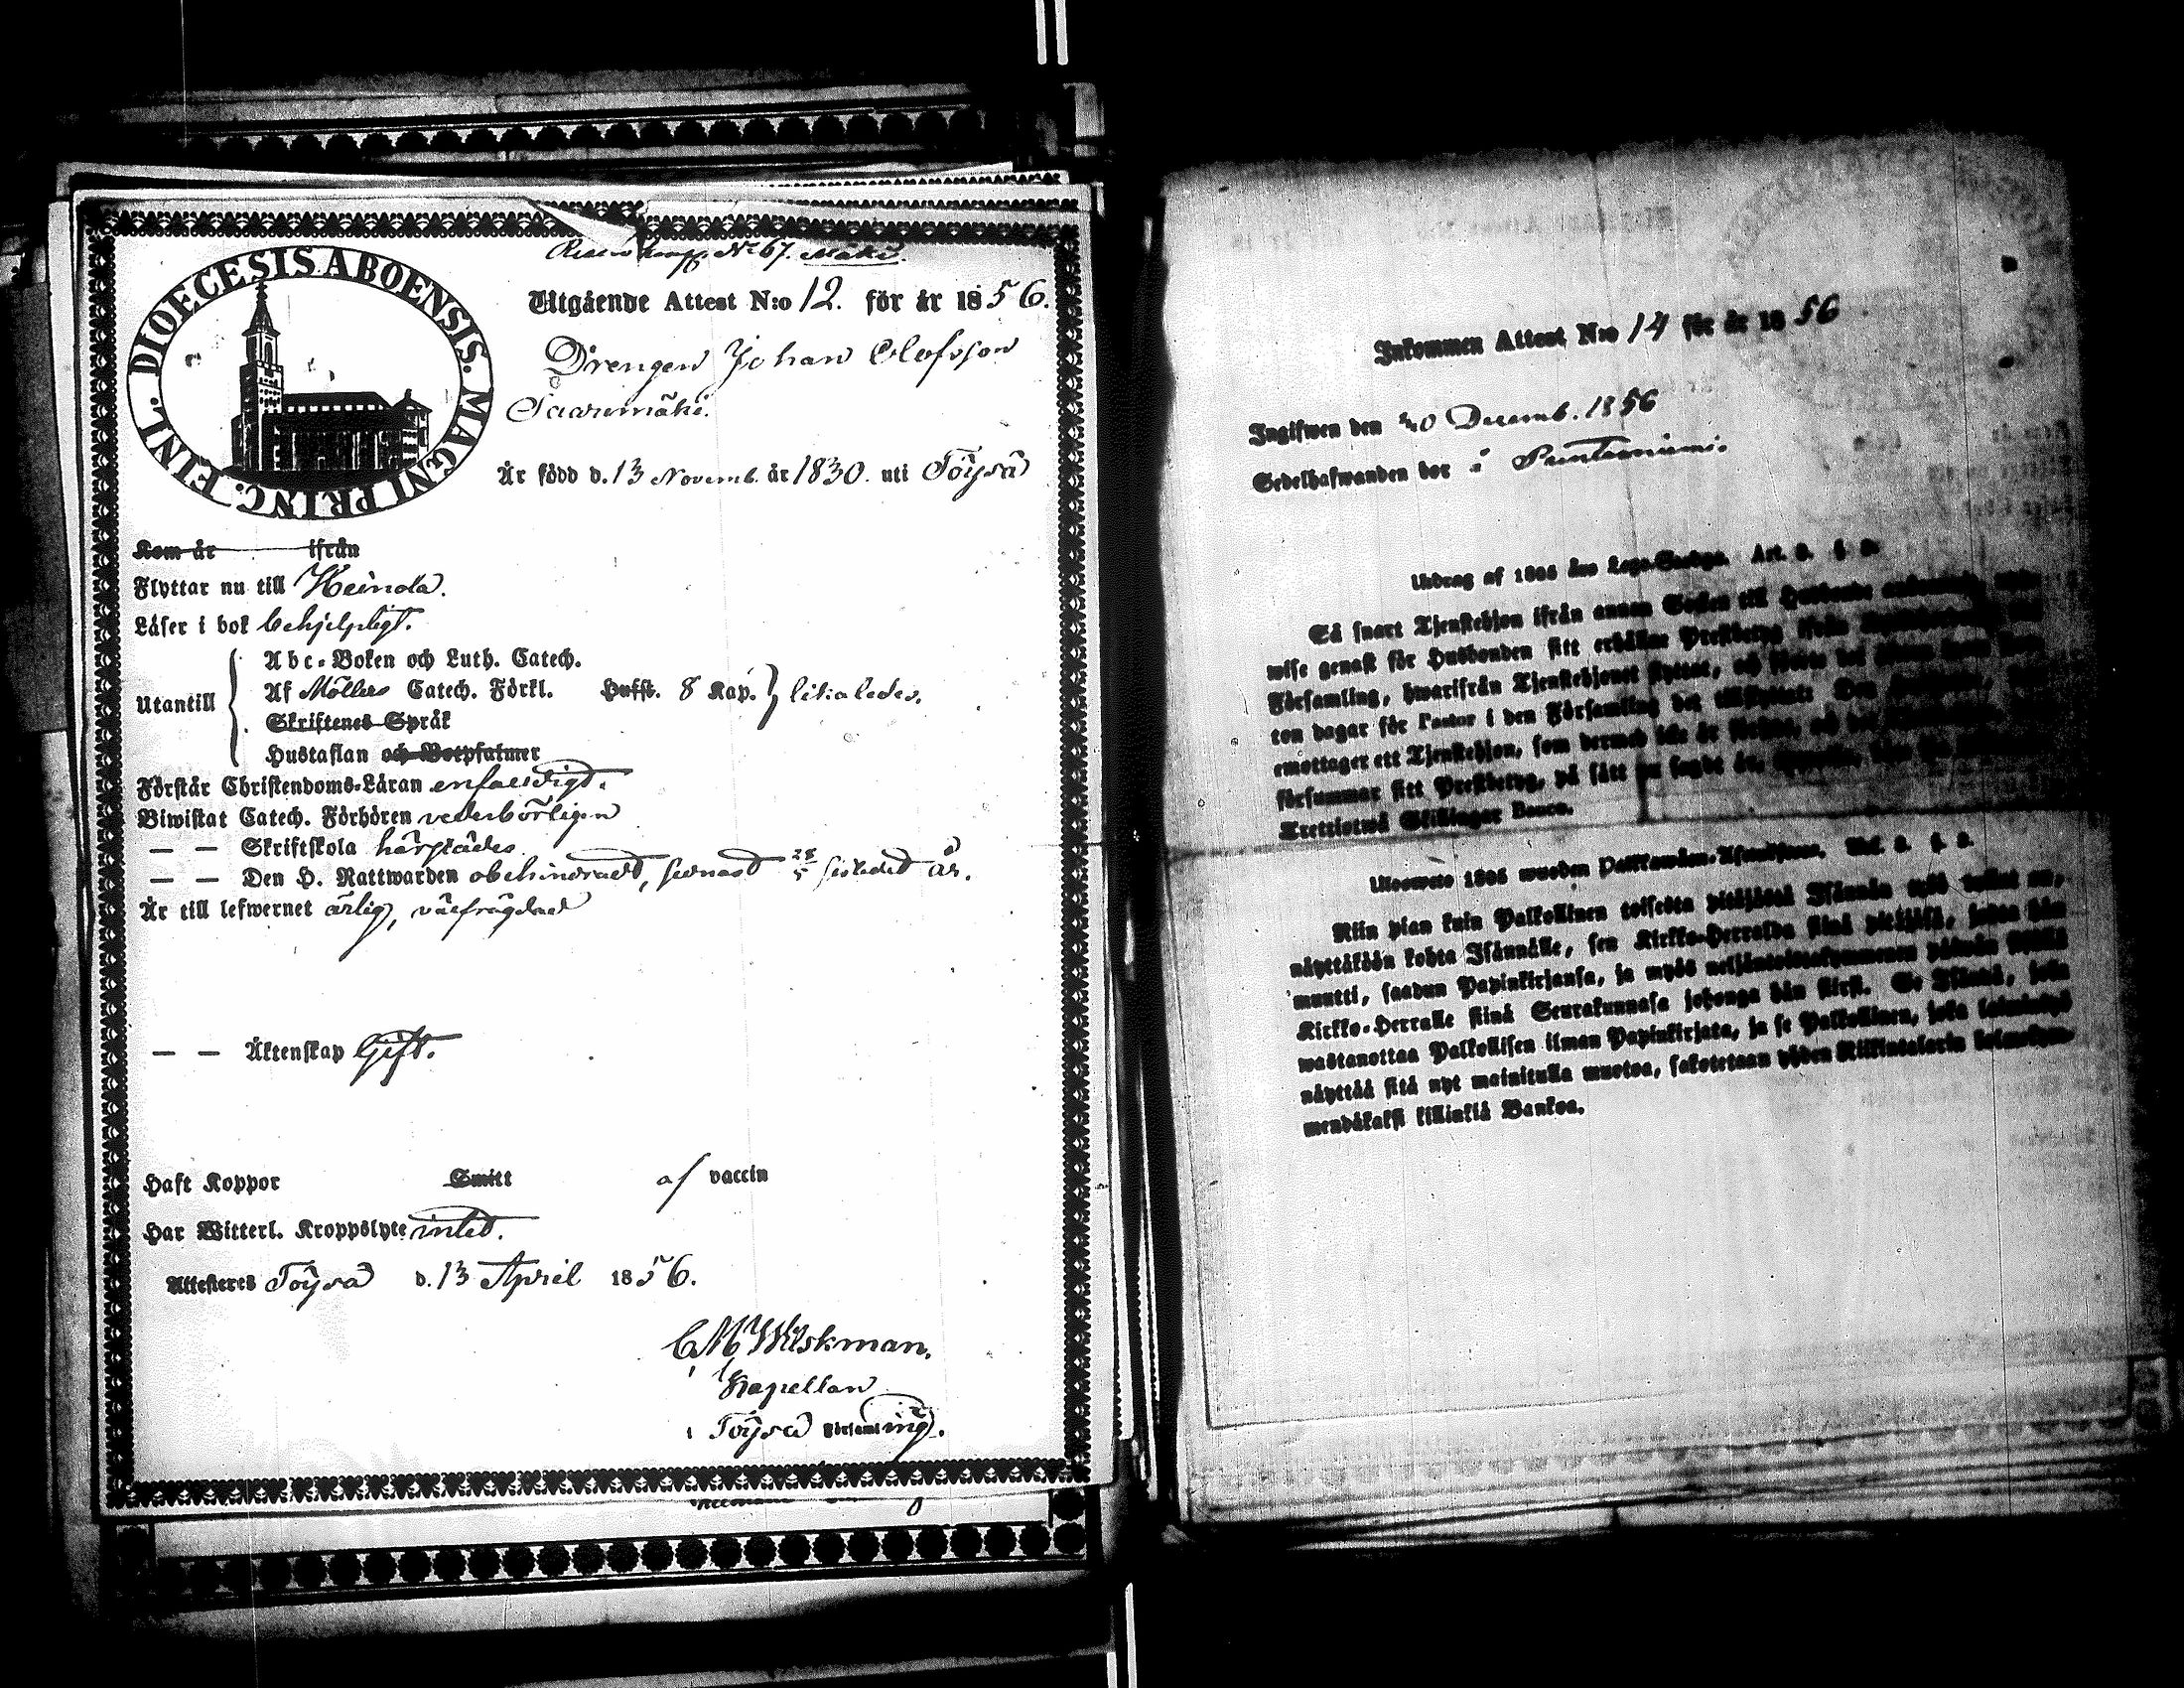 DIOECESIS ABOENSIS. MAGNI PRINC. FINL.
No 67.
Utgående Attest N:o 12. för år 1856.
Drengen Johan Olofsson
Saarimäki.
Är född d. 13 Novemb. år 1830. uti Töysä
Kom år ifrån
Flyttar nu till
Läser i bok behjelpligt.
Abc-Boken och Luth. Catech.
Utantill Af Möllers Catech. Förkl. Husst. 8 Kap. likaledes.
Skriftenes Språk
Hustaflan och Botpsalmer
Förstår Christendoms-Läran enfaldigt.
Biwistat Catech. Förhören vederbörligen
— — Skriftskola härstädes
— — Den H. Nattwarden obehindrad, senast 28/5 sistledet år.
Är till lefwernet ärlig, välfrägdad
— — Äktenskap Gift.
Haft Koppor Smitt af vaccin
Har Witterl. Kroppslyte intet.
Attesteras Töysä d. 13 April 1856.
C M Wiskman.
Kapellan
i Töysä Församling.
Inkommen Attest N:o 14 för år 1856
Ingifwen den Decemb. 1856
Sedelhafwanden bor å
Utdrag af 1805 års Lego-Stadga. Art. 3. §
Så snart Tjenstehjon ifrån annan Socken till Husbonde
wise genast för Husbonden sitt erhållne Prestbetyg ifrån
Församling, hwarifrån Tjenstehjonet flyttat, och
ton dagar för Pastor i den Församling det tillflyttat: Den
emottager ett Tjenstehjon, som dermed icke är försedt, och det
försummar sitt Prestbetyg, på sätt nu sagdt är,
Trettiotwå Skillingar Banco.
Ulosweto 1805 wuoden Palkkawäen-Asetuksesta.
Niin pian kuin Palkollinen toisesta pitäjästä Isännän
näyttäköön kohta Isännälle, sen Kirkko-Herralda siinä pitäjäsä, josta hän
muutti, saadun Papinkirjansa, ja myös neljäntoistakymmenen päiwän
Kirkko-Herralle siinä Seurakunnasa johonga hän siirsi. Se Isäntä, joka
wastanottaa Palkollisen ilman Papinkirjata, ja se Palkollinen, joka
näyttää sitä nyt mainitulla muotoa, sakotetaan yhden Riikintalarin kolmekym-
mendäkaksi killinkiä Bankoa.